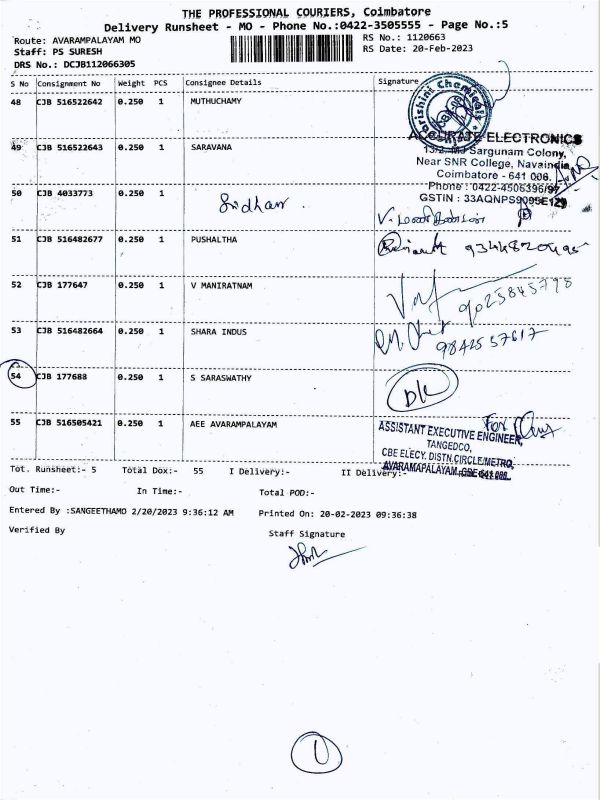 THE PROFESSIONAL COURIERS, Coimbatore
Delivery Runsheet - MO - Phone No.:0422-3505555 - Page No.:5
Route: AVARAMPALAYAM MO
Staff: PS SURESH
DRS No.: DCJB112066305
RS No.: 1120663
RS Date: 20-Feb-2023
S No Consignment No Weight PCS Consignee Details Signature
48 CJB 516522642 0.250 1 MUTHUCHAMY
49 CJB 516522643 0.250 1 SARAVANA
ACCURATE ELECTRONICS
Sargunam Colony,
Near SNR College, Navaindia
Coimbatore - 641 006.
Phone : 0422-4506396/97
GSTIN : 33AQNPS9095E1Z9
50 CJB 4033773 0.250 1 Sridhar.
51 CJB 516482677 0.250 1 PUSHALTHA
52 CJB 177647 0.250 1 V MANIRATNAM 9025845798
53 CJB 516482664 0.250 1 SHARA INDUS 9842557617
54 CJB 177688 0.250 1 S SARASWATHY
55 CJB 516505421 0.250 1 AEE AVARAMPALAYAM For
ASSISTANT EXECUTIVE ENGINEER,
TANGEDCO,
CBE ELECY. DISTN.CIRCLE/METRO,
AVARAMAPALAYAM, CBE 641 006.
Tot. Runsheet:- 5 Total Dox:- 55 I Delivery:- II Delivery:-
Out Time:- In Time:- Total POD:-
Entered By :SANGEETHAMO 2/20/2023 9:36:12 AM Printed On: 20-02-2023 09:36:38
Verified By Staff Signature
1